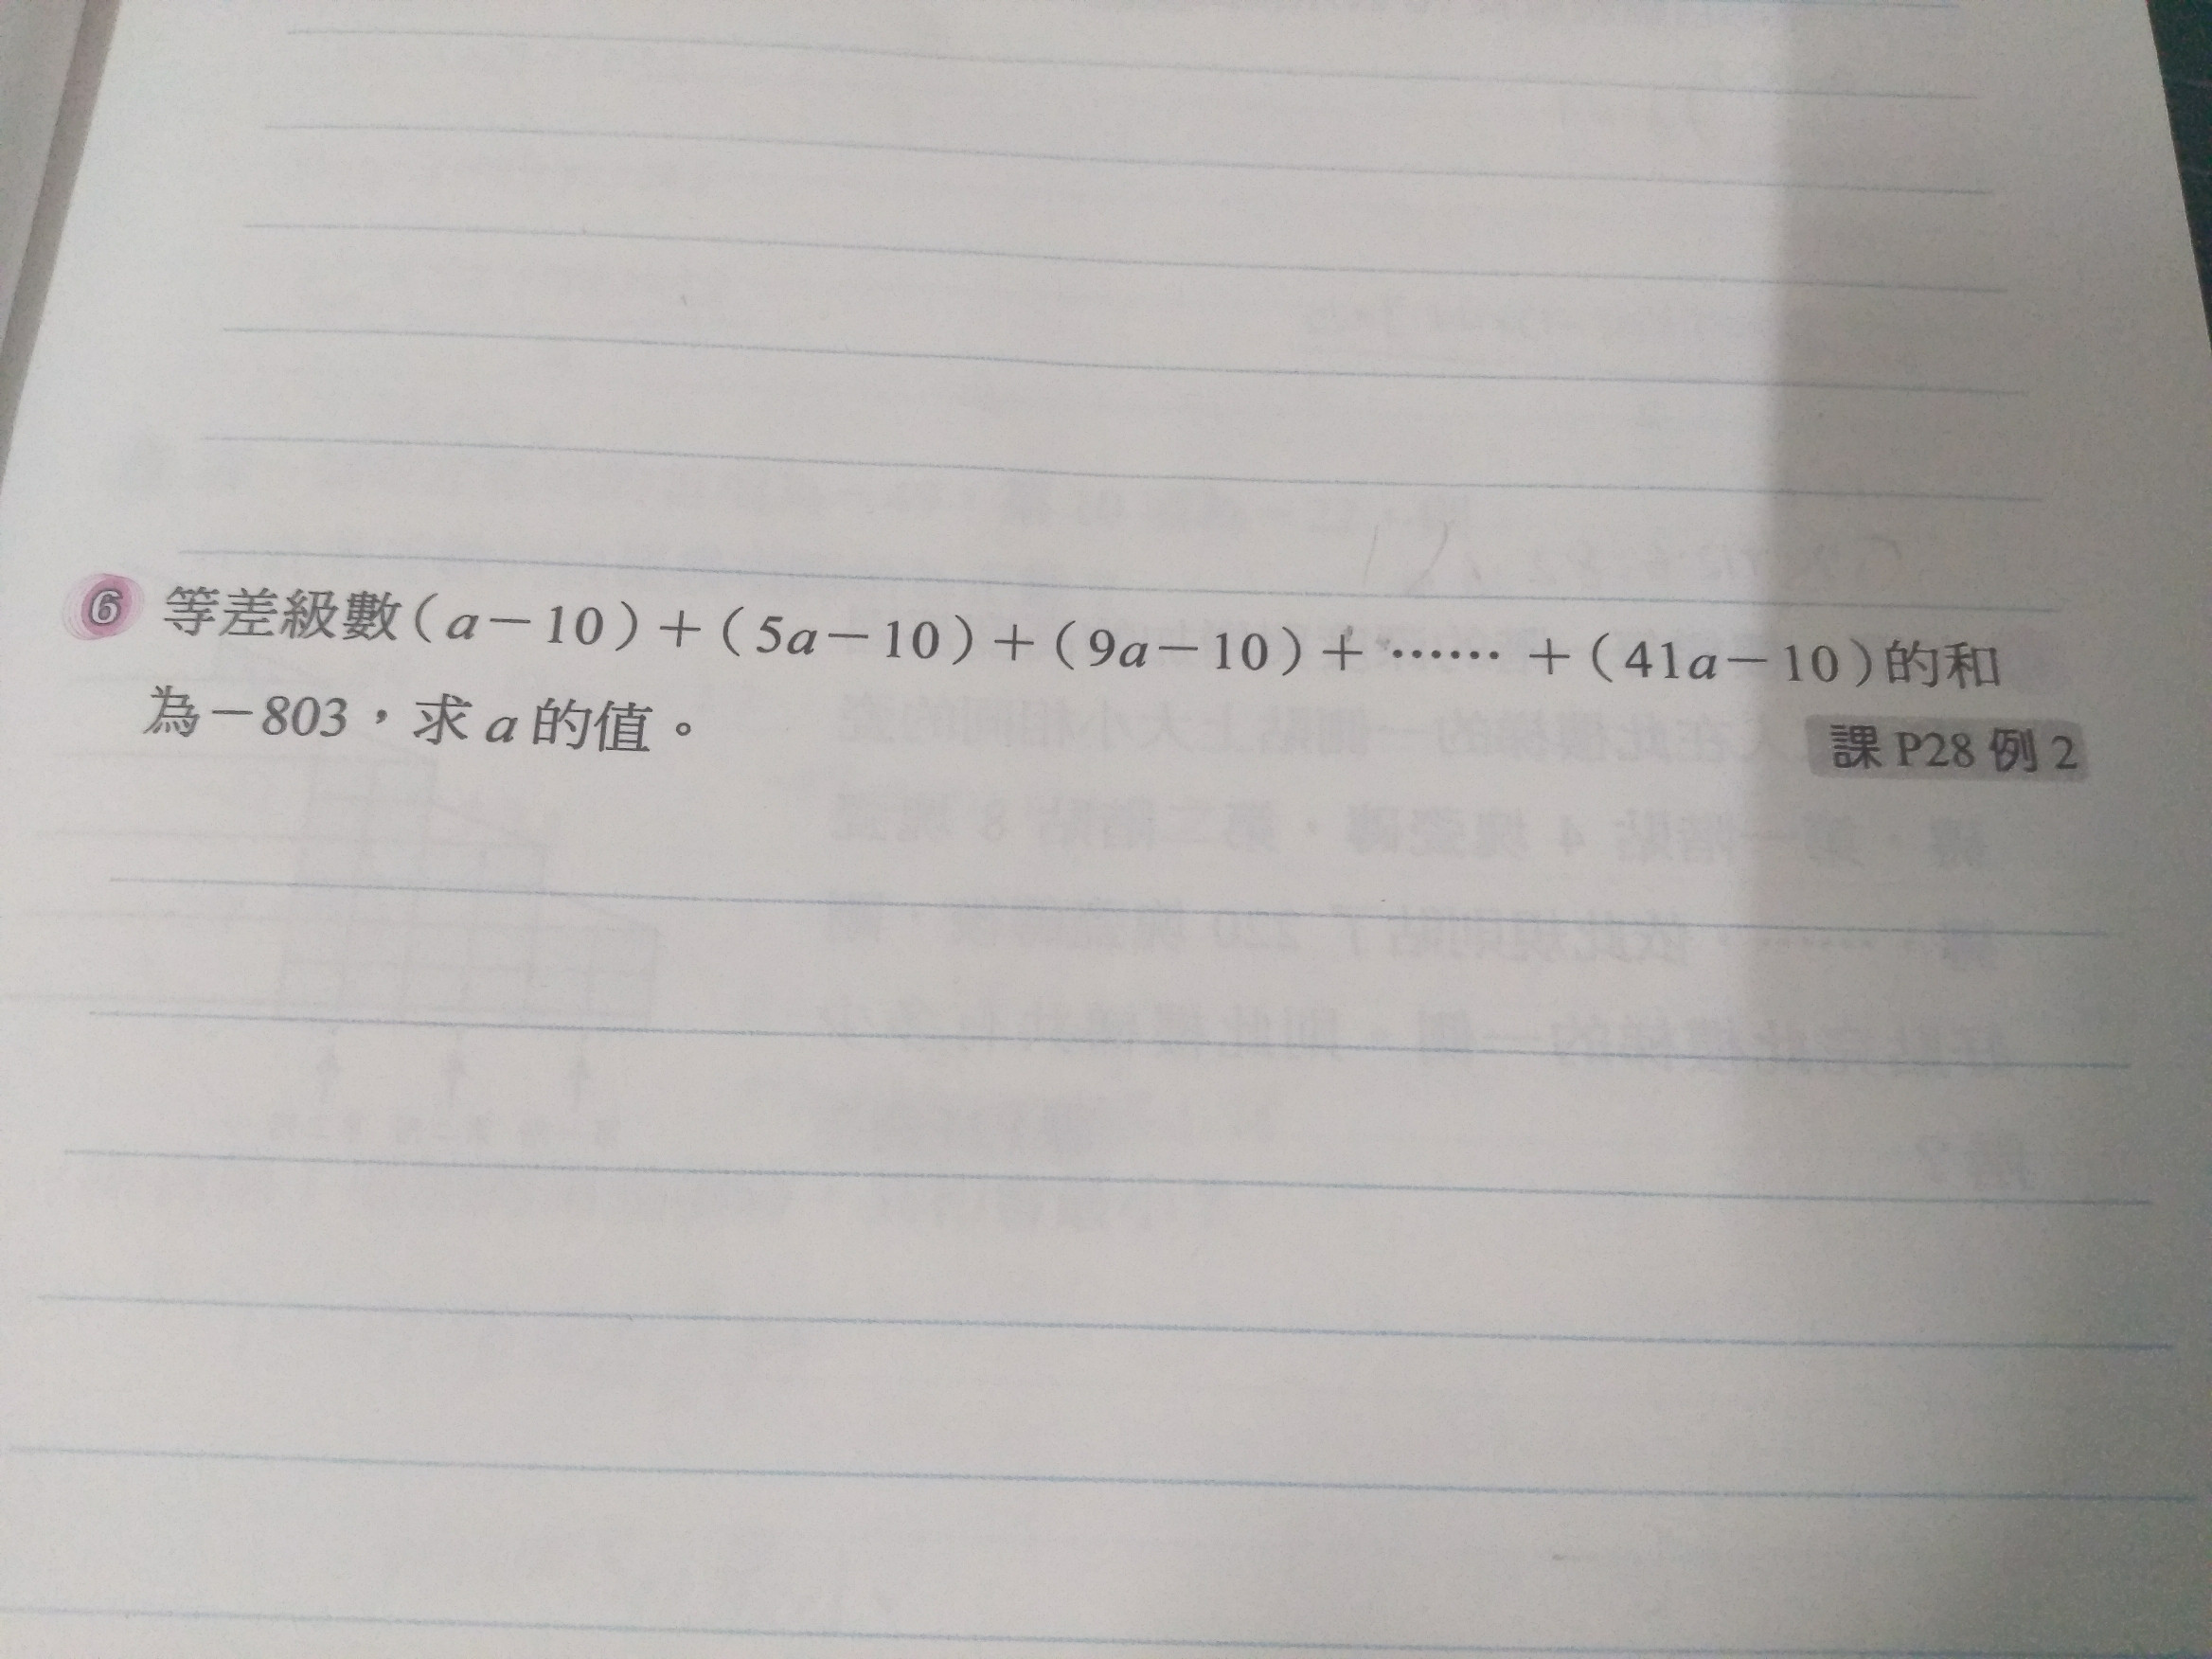 6 等差級數(a-10)+(5a-10)+(9a-10)+……+(41a-10)的和
為-803,求a的值。
課P28例2